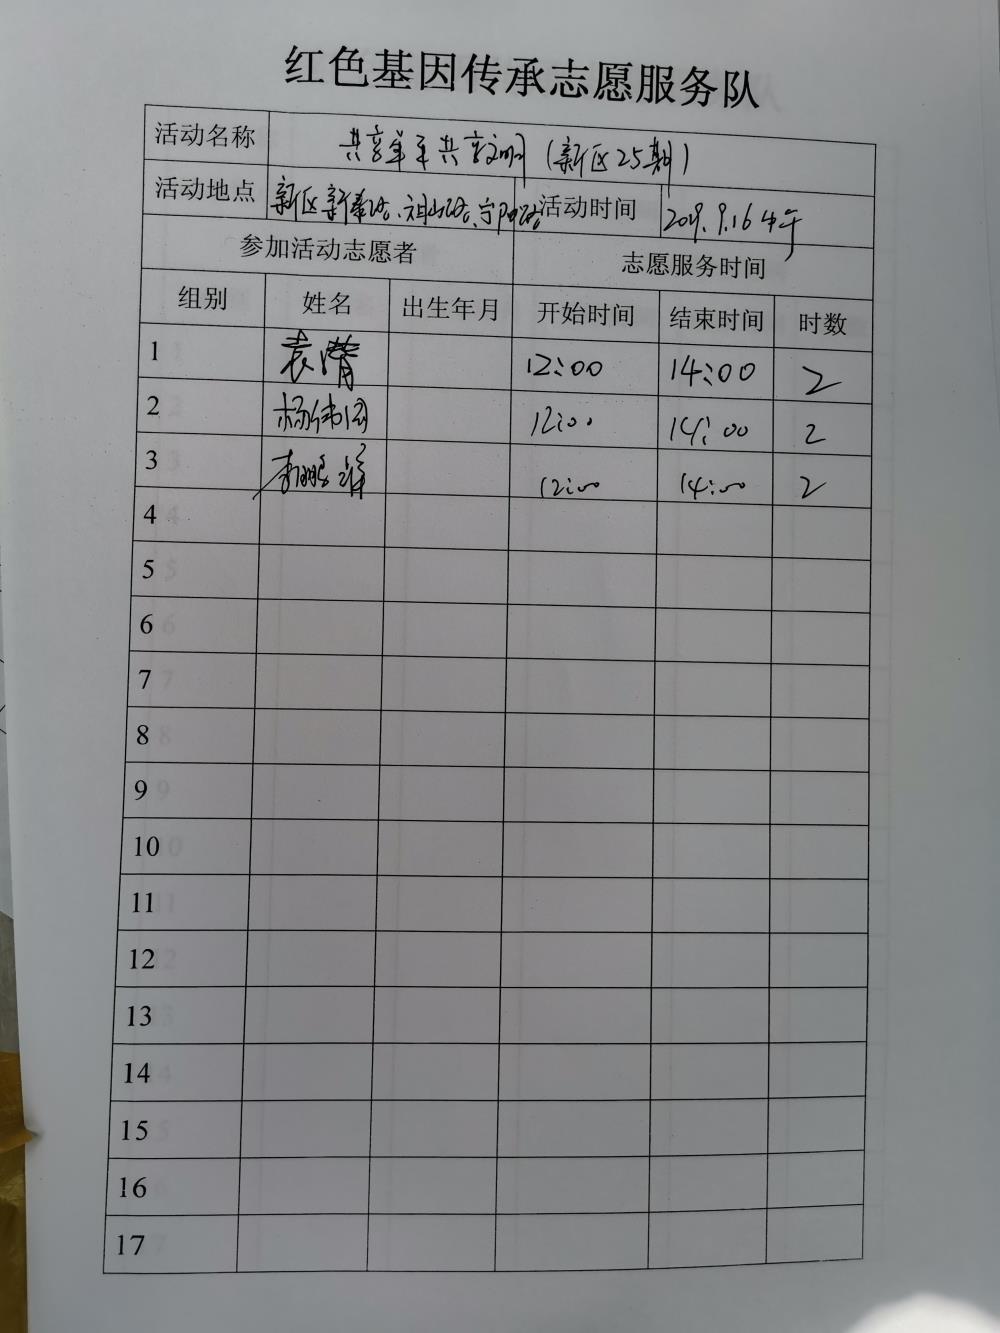 红色基因传承志愿服务队
活动名称 共享单车共享文明（新区25期）
活动地点 新区新 路、祖山路、 活动时间 2019.9.16中午
参加活动志愿者 志愿服务时间
组别 姓名 出生年月 开始时间 结束时间 时数
1 袁 12:00 14:00 2
2 杨伟 12:00 14:00 2
3 李鹏 12:00 14:00 2
4
5
6
7
8
9
10
11
12
13
14
15
16
17